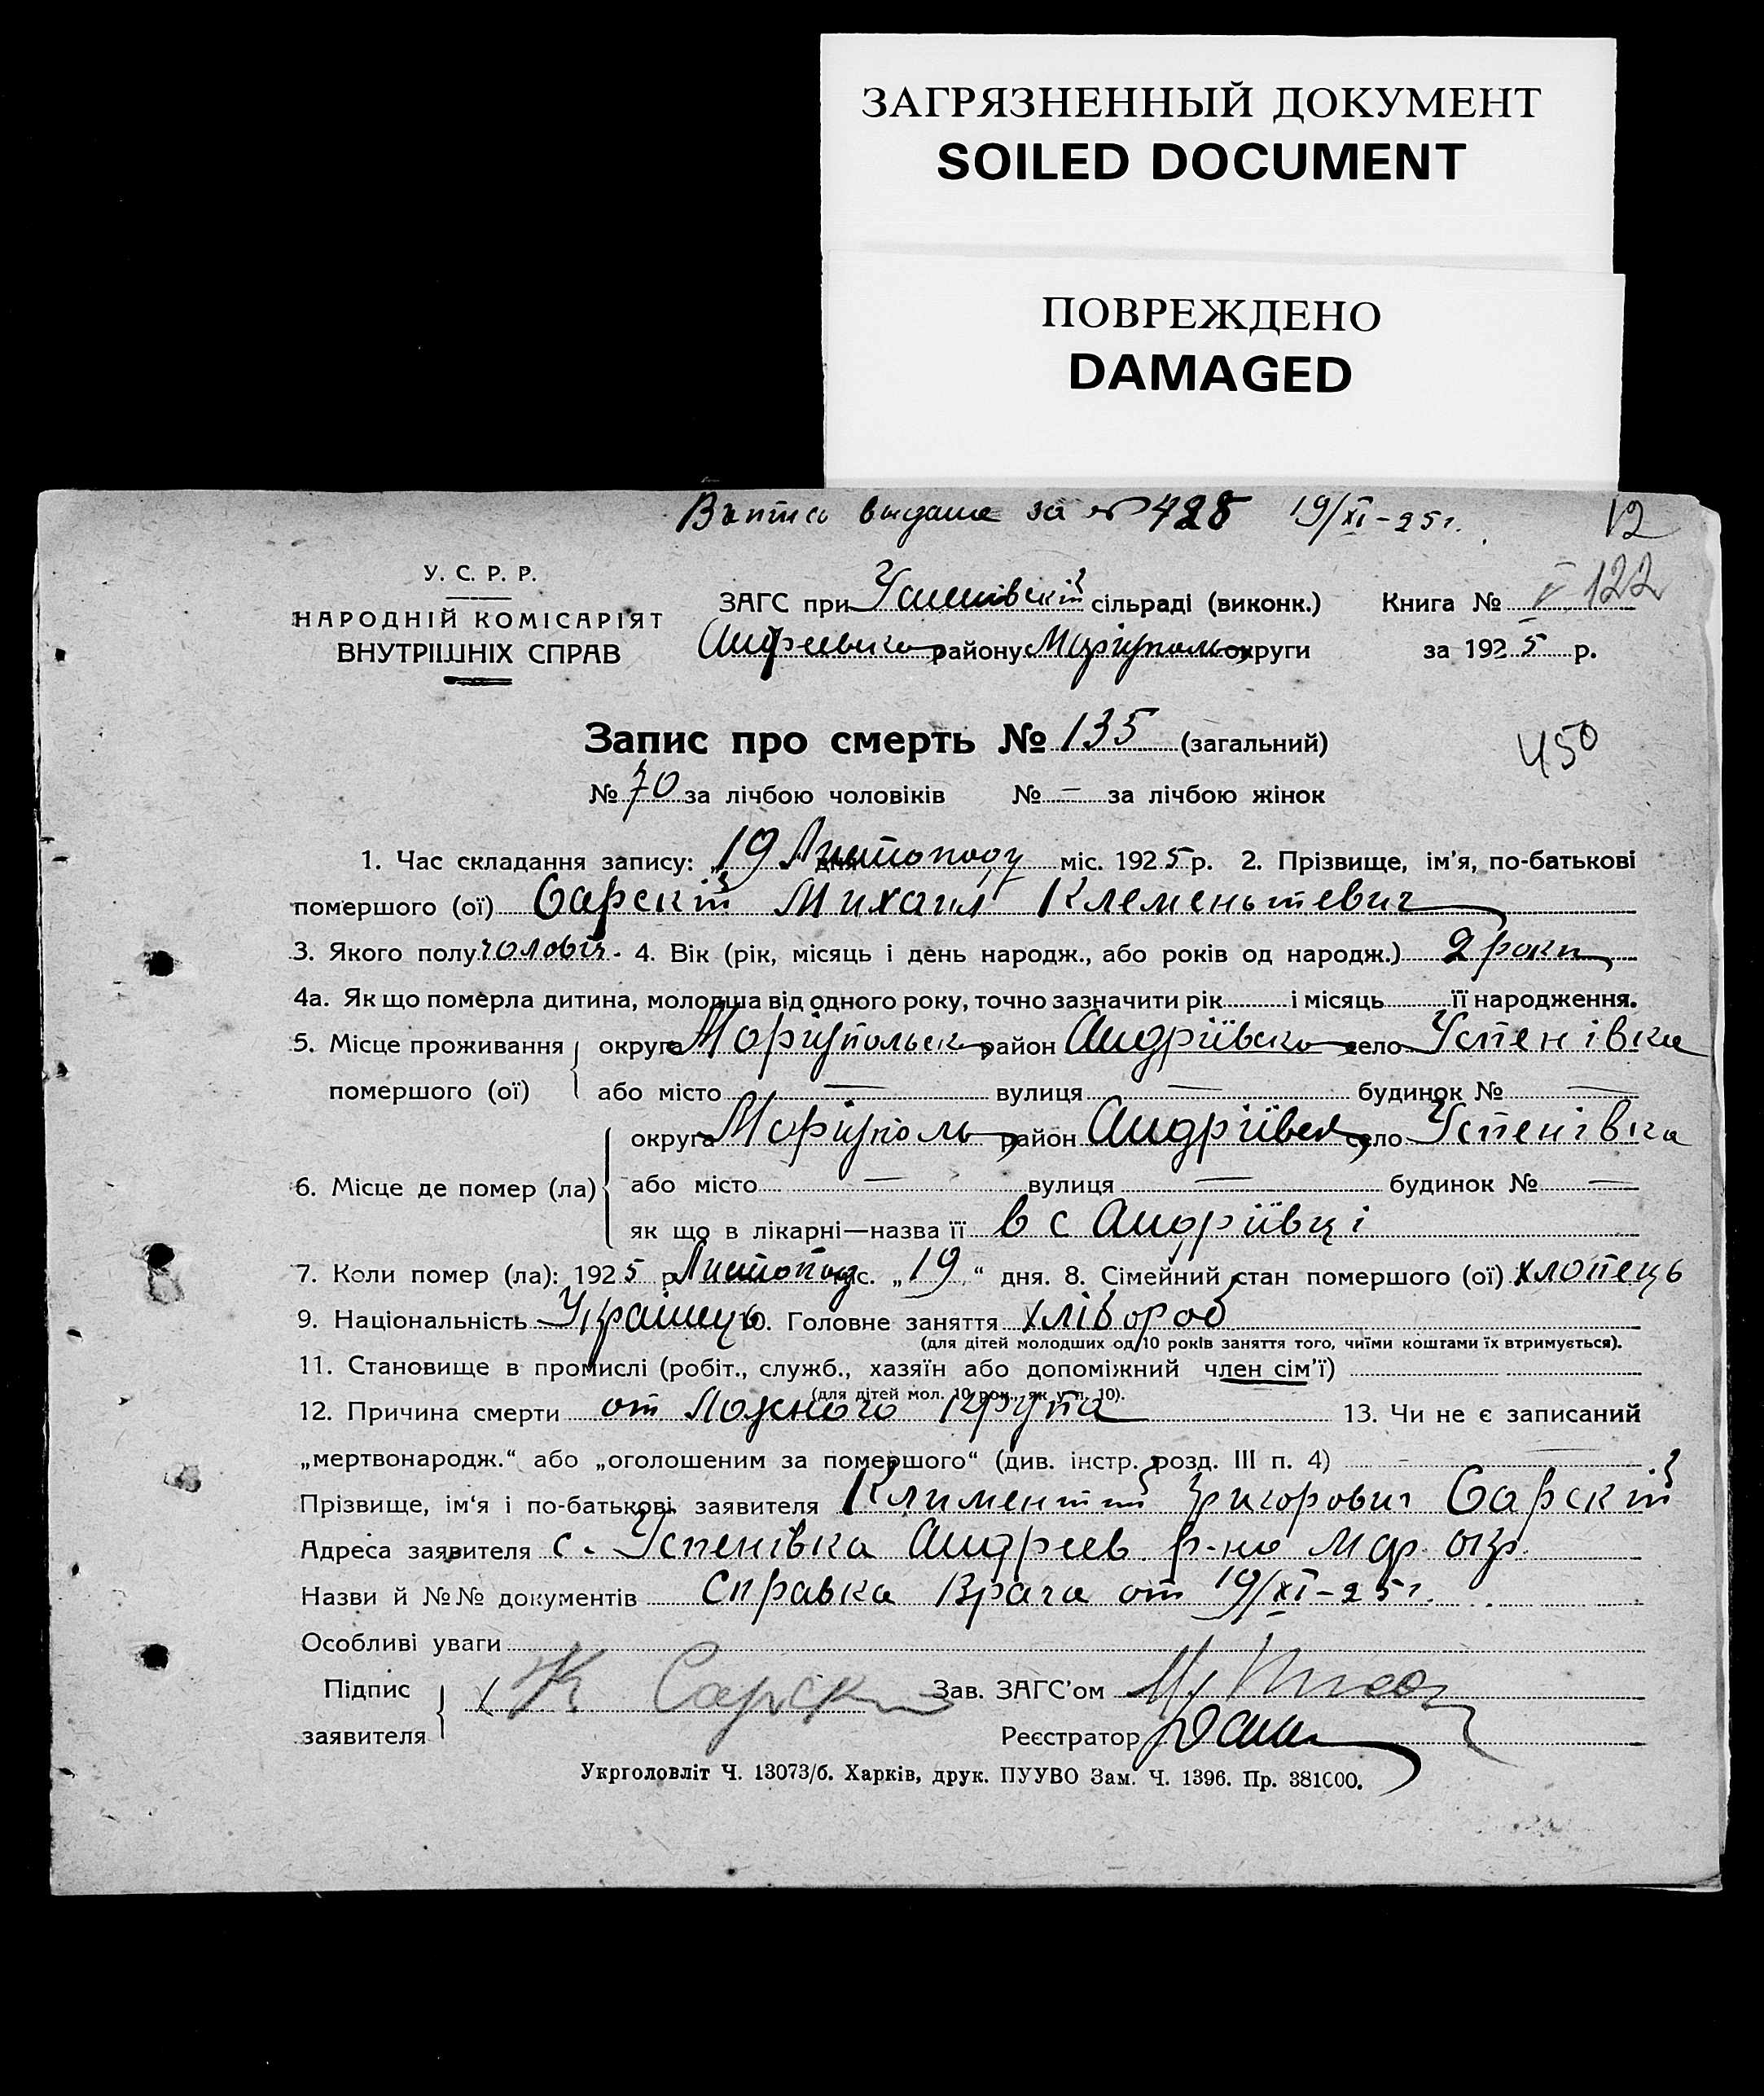 ЗАГРЯЗНЕННЫЙ ДОКУМЕНТ
SOILED DOCUMENT
ПОВРЕЖДЕНО
DAMAGED
выдана за № 428 19/XI-25г. 12
У. С. Р. Р.
НАРОДНІЙ КОМІСАРІЯТ
ВНУТРІШНІХ СПРАВ
ЗАГС при сільраді (виконк.) Книга № 122
району Маріуполь округи за 1925 р.
Запис про смерть № 135 (загальний)
450
№ 70 за лічбою чоловіків № — за лічбою жінок
1. Час складання запису: „19“ дня Листопаду міс. 1925 р. 2. Прізвище, ім'я, по-батькові
помершого (ої) Сарскій Михаил Клеменьтевич
3. Якого полу чоловіч. 4. Вік (рік, місяць і день народж., або років од народж.) 2 роки
4а. Як що померла дитина, молодша від одного року, точно зазначити рік і місяць її народження.
5. Місце проживання округа Маріупольськ район Андріївсько село Успенівка
помершого (ої) або місто — вулиця — будинок № —
округа Маріуполь район Андріївск село Успенівка
6. Місце де помер (ла) або місто — вулиця — будинок № —
як що в лікарні—назва її в с Андріївці
7. Коли помер (ла): 1925 р. Листопад міс. „19“ дня. 8. Сімейний стан помершого (ої) хлопець
9. Національність Украінець 10. Головне заняття хлівороб
(для дітей молодших од 10 років заняття того, чиїми коштами їх втримується).
11. Становище в промислі (робіт., служб., хазяїн або допоміжний член сім'ї)
(для дітей мол. 10 рок., як у п. 10).
12. Причина смерти от Ложного Крупа 13. Чи не є записаний
„мертвонародж.“ або „оголошеним за помершого“ (див. інстр. розд. III п. 4) —
Прізвище, ім'я і по-батькові заявителя Климентий Григорович Сарскій
Адреса заявителя с. Успенівка Андреев р-на Мар. окр.
Назви й №№ документів Справка Врача от 19/XI-25г.
Особливі уваги
Підпис К Сарский Зав. ЗАГС'ом
заявителя Реєстратор
Укрголовліт Ч. 13073/б. Харків, друк. ПУУВО Зам. Ч. 1396. Пр. 381000.